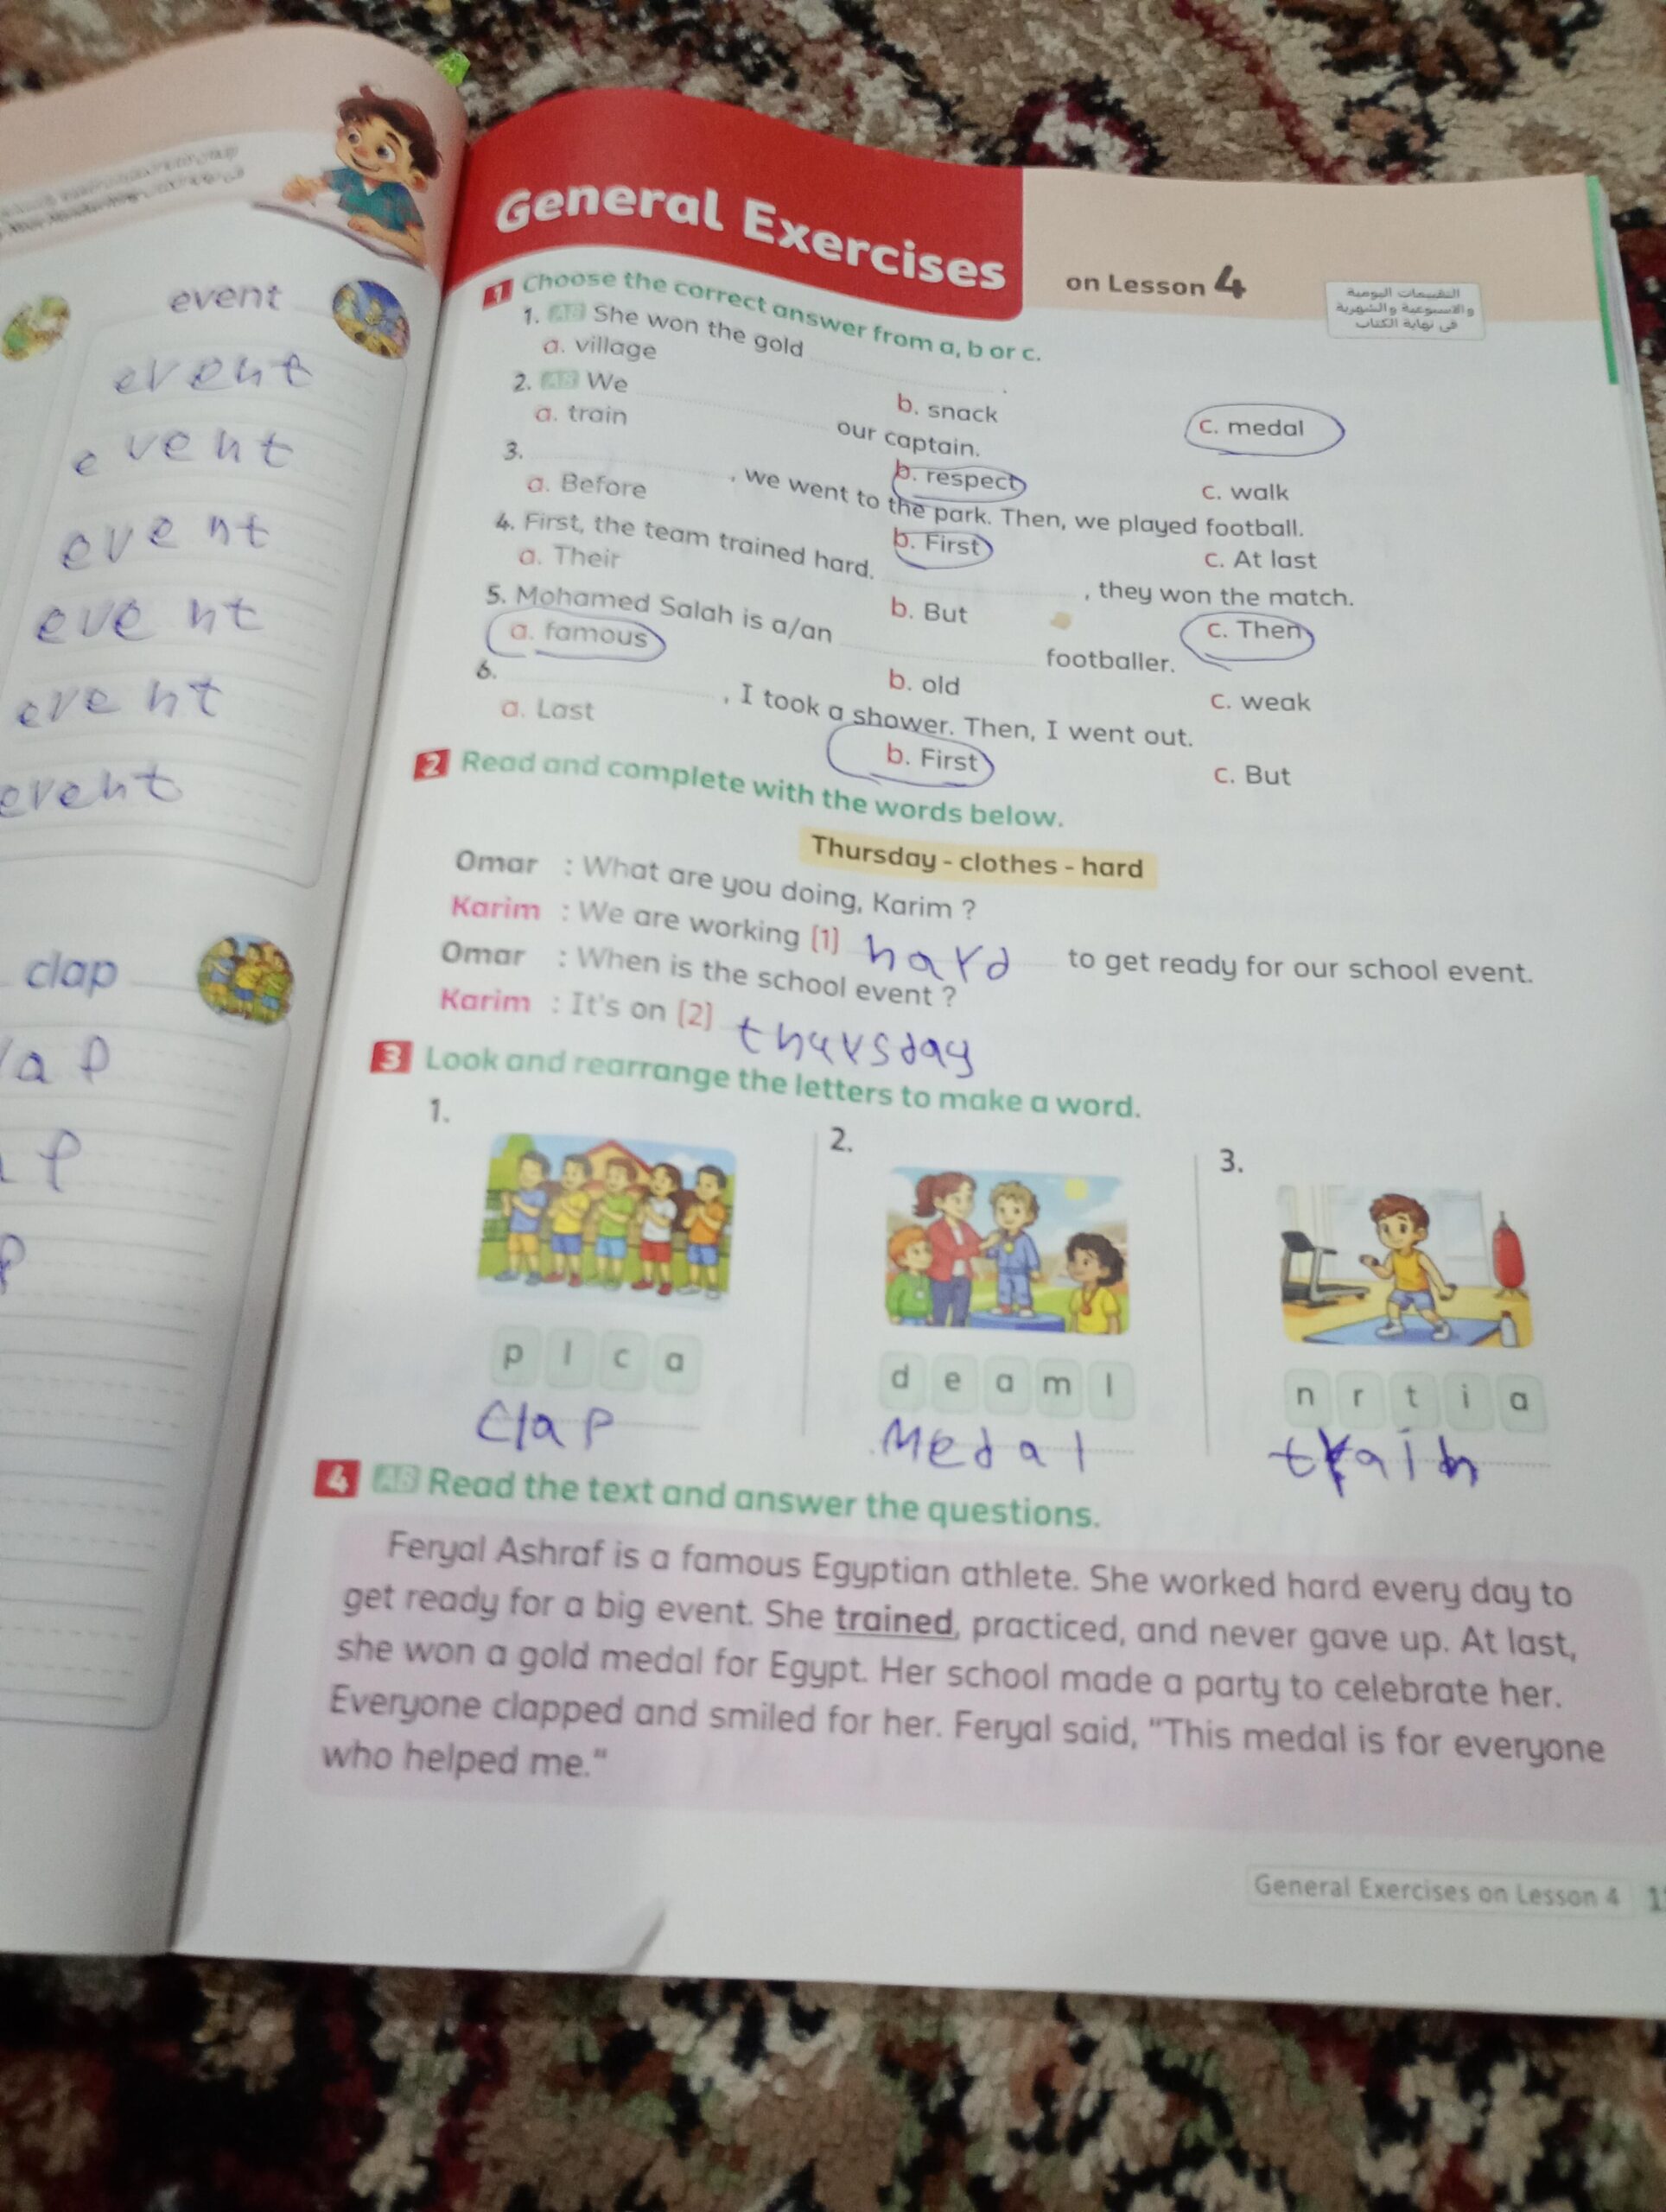 event
event
event
event
event
event
event
clap
ap
p
p
General Exercises
on Lesson 4
التقييمات اليومية
والأسبوعية والشهرية
فى نهاية الكتاب
1 Choose the correct answer from a, b or c.
1. AB She won the gold .
a. village b. snack c. medal
2. AB We our captain.
a. train b. respect c. walk
3. , we went to the park. Then, we played football.
a. Before b. First c. At last
4. First, the team trained hard. , they won the match.
a. Their b. But c. Then
5. Mohamed Salah is a/an footballer.
a. famous b. old c. weak
6. , I took a shower. Then, I went out.
a. Last b. First c. But
2 Read and complete with the words below.
Thursday - clothes - hard
Omar : What are you doing, Karim ?
Karim : We are working (1) hard to get ready for our school event.
Omar : When is the school event ?
Karim : It's on (2) thursday
3 Look and rearrange the letters to make a word.
1. 2. 3.
p l c a d e a m l n r t i a
Clap Medal train
4 AB Read the text and answer the questions.
Feryal Ashraf is a famous Egyptian athlete. She worked hard every day to
get ready for a big event. She trained, practiced, and never gave up. At last,
she won a gold medal for Egypt. Her school made a party to celebrate her.
Everyone clapped and smiled for her. Feryal said, "This medal is for everyone
who helped me."
General Exercises on Lesson 4